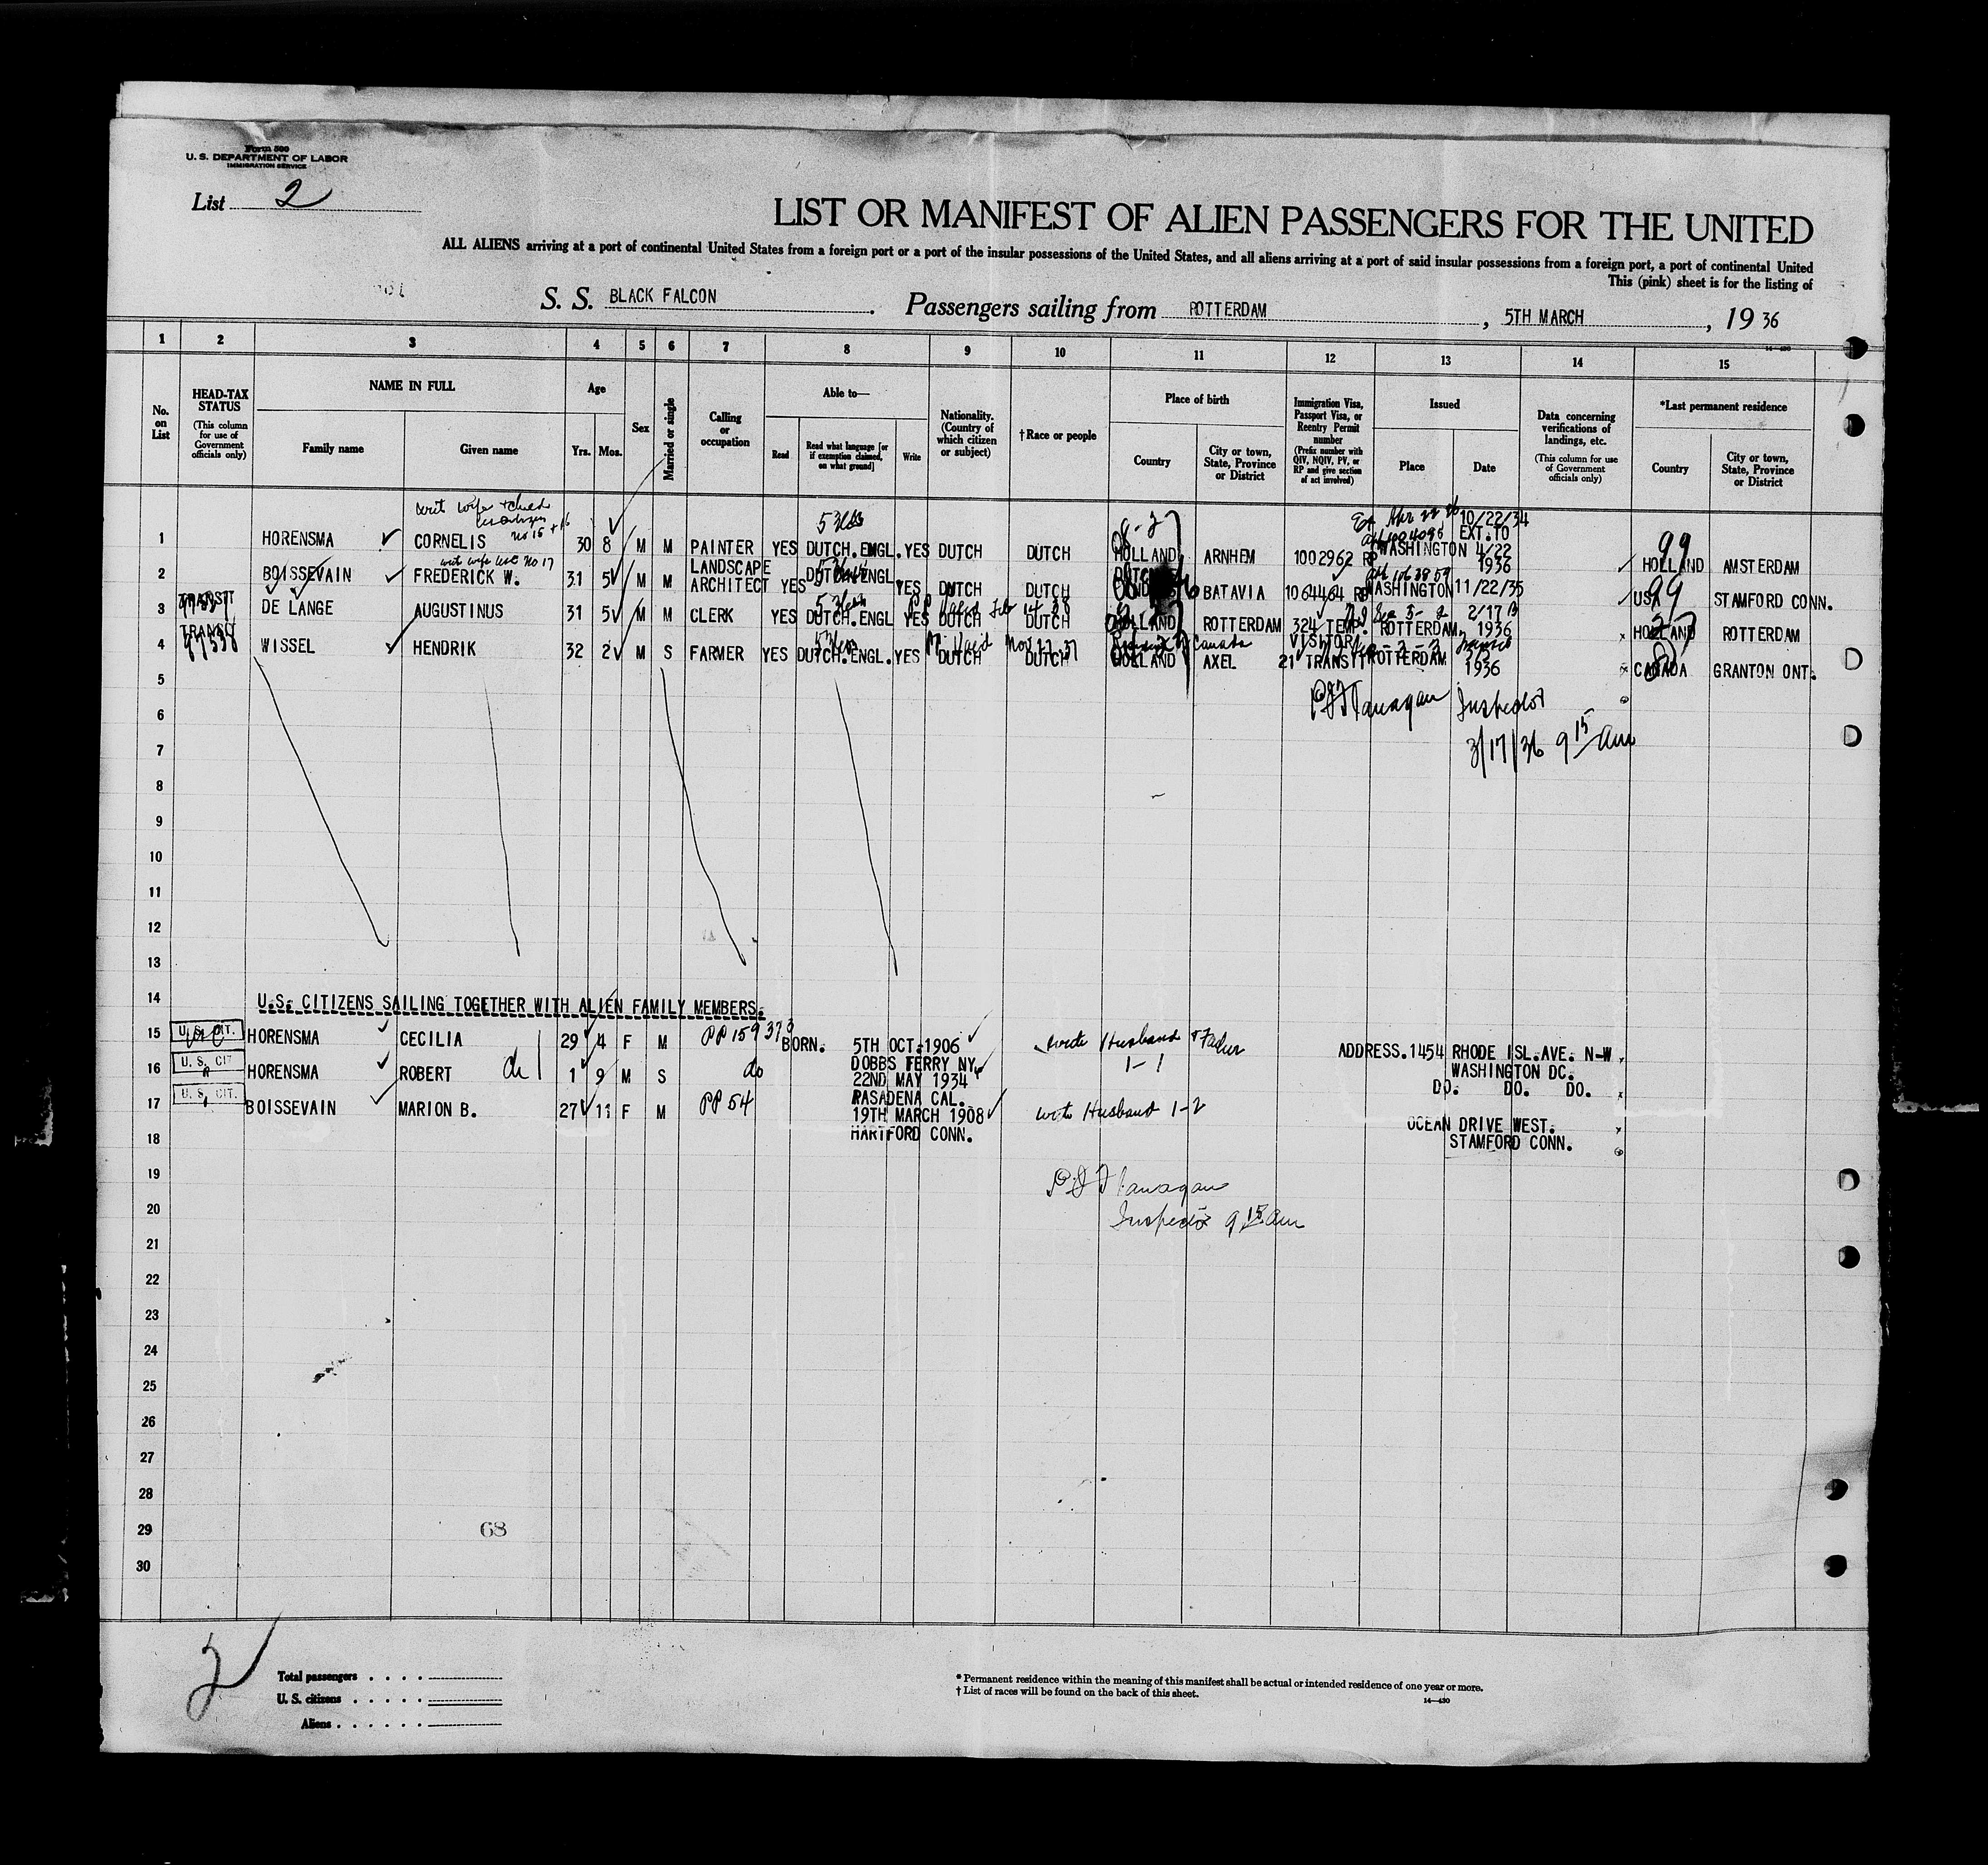 Form 500
U. S. DEPARTMENT OF LABOR
IMMIGRATION SERVICE
List 2
LIST OR MANIFEST OF ALIEN PASSENGERS FOR THE UNITED
ALL ALIENS arriving at a port of continental United States from a foreign port or a port of the insular possessions of the United States, and all aliens arriving at a port of said insular possessions from a foreign port, a port of continental United
This (pink) sheet is for the listing of
S. S. BLACK FALCON. Passengers sailing from ROTTERDAM, 5TH MARCH, 1936
14—430
1 2 3 4 5 6 7 8 9 10 11 12 13 14 15
No. on List
HEAD-TAX STATUS (This column for use of Government officials only)
NAME IN FULL
Family name
Given name
Age
Yrs. Mos.
Sex
Married or single
Calling or occupation
Able to—
Read
Read what language [or if exemption claimed, on what ground]
Write
Nationality. (Country of which citizen or subject)
†Race or people
Place of birth
Country
City or town, State, Province or District
Immigration Visa, Passport Visa, or Reentry Permit number (Prefix number with QIV, NQIV, PV, or RP and give section of act involved)
Issued
Place
Date
Data concerning verifications of landings, etc. (This column for use of Government officials only)
*Last permanent residence
Country
City or town, State, Province or District
No 15 + 16
1 HORENSMA CORNELIS 30 8 M M PAINTER YES DUTCH.ENGL. YES DUTCH DUTCH HOLLAND ARNHEM 1002962 RP WASHINGTON 10/22/34 EXT.TO 4/22 1936 HOLLAND AMSTERDAM
with wife list No 17
2 BOISSEVAIN FREDERICK W. 31 5 M M LANDSCAPE ARCHITECT YES DUTCH ENGL. YES DUTCH DUTCH BATAVIA 1064464 RP WASHINGTON 11/22/35 USA STAMFORD CONN.
TRANSIT
3 DE LANGE AUGUSTINUS 31 5 M M CLERK YES DUTCH.ENGL YES DUTCH DUTCH HOLLAND ROTTERDAM 324 TEMP. VISITOR ROTTERDAM 2/17 1936 HOLLAND ROTTERDAM
TRANSIT
4 97338 WISSEL HENDRIK 32 2 M S FARMER YES DUTCH.ENGL. YES DUTCH DUTCH HOLLAND AXEL 21 TRANSIT ROTTERDAM 1936 CANADA GRANTON ONT.
5
6 P J Flanagan Inspector
7 3/17/36 9 15 Am
8
9
10
11
12
13
14 U.S. CITIZENS SAILING TOGETHER WITH ALIEN FAMILY MEMBERS.
15 U.S. CIT. HORENSMA CECILIA 29 4 F M PP 159373 BORN. 5TH OCT.1906 DOBBS FERRY NY. with Husband & Father 1-1 ADDRESS.1454 RHODE ISL.AVE. N-W. WASHINGTON DC.
16 U. S. CIT HORENSMA ROBERT 1 9 M S do 22ND MAY 1934 PASADENA CAL. DO. DO. DO.
17 U. S. CIT. BOISSEVAIN MARION B. 27 11 F M PP 54 19TH MARCH 1908 HARTFORD CONN. with Husband 1-2 OCEAN DRIVE WEST. STAMFORD CONN.
18
19 P J Flanagan
20 Inspector 9 15 Am
21
22
23
24
25
26
27
28
29 68
30
2
Total passengers . . . .
U. S. citizens . . . . .
Aliens . . . . . .
* Permanent residence within the meaning of this manifest shall be actual or intended residence of one year or more.
† List of races will be found on the back of this sheet.
14—430